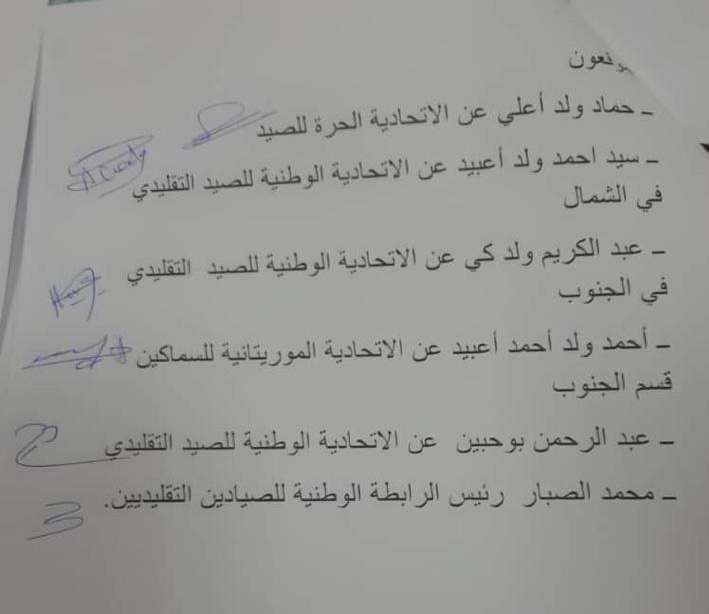 وقعون
ـ حماد ولد أعلي عن الاتحادية الحرة للصيد
ـ سيد احمد ولد أعبيد عن الاتحادية الوطنية للصيد التقليدي
في الشمال
ـ عبد الكريم ولد كي عن الاتحادية الوطنية للصيد التقليدي
في الجنوب
ـ أحمد ولد أحمد أعبيد عن الاتحادية الموريتانية للسماكين
قسم الجنوب
ـ عبد الرحمن بوحبين عن الاتحادية الوطنية للصيد التقليدي
ـ محمد الصبار رئيس الرابطة الوطنية للصيادين التقليديين.